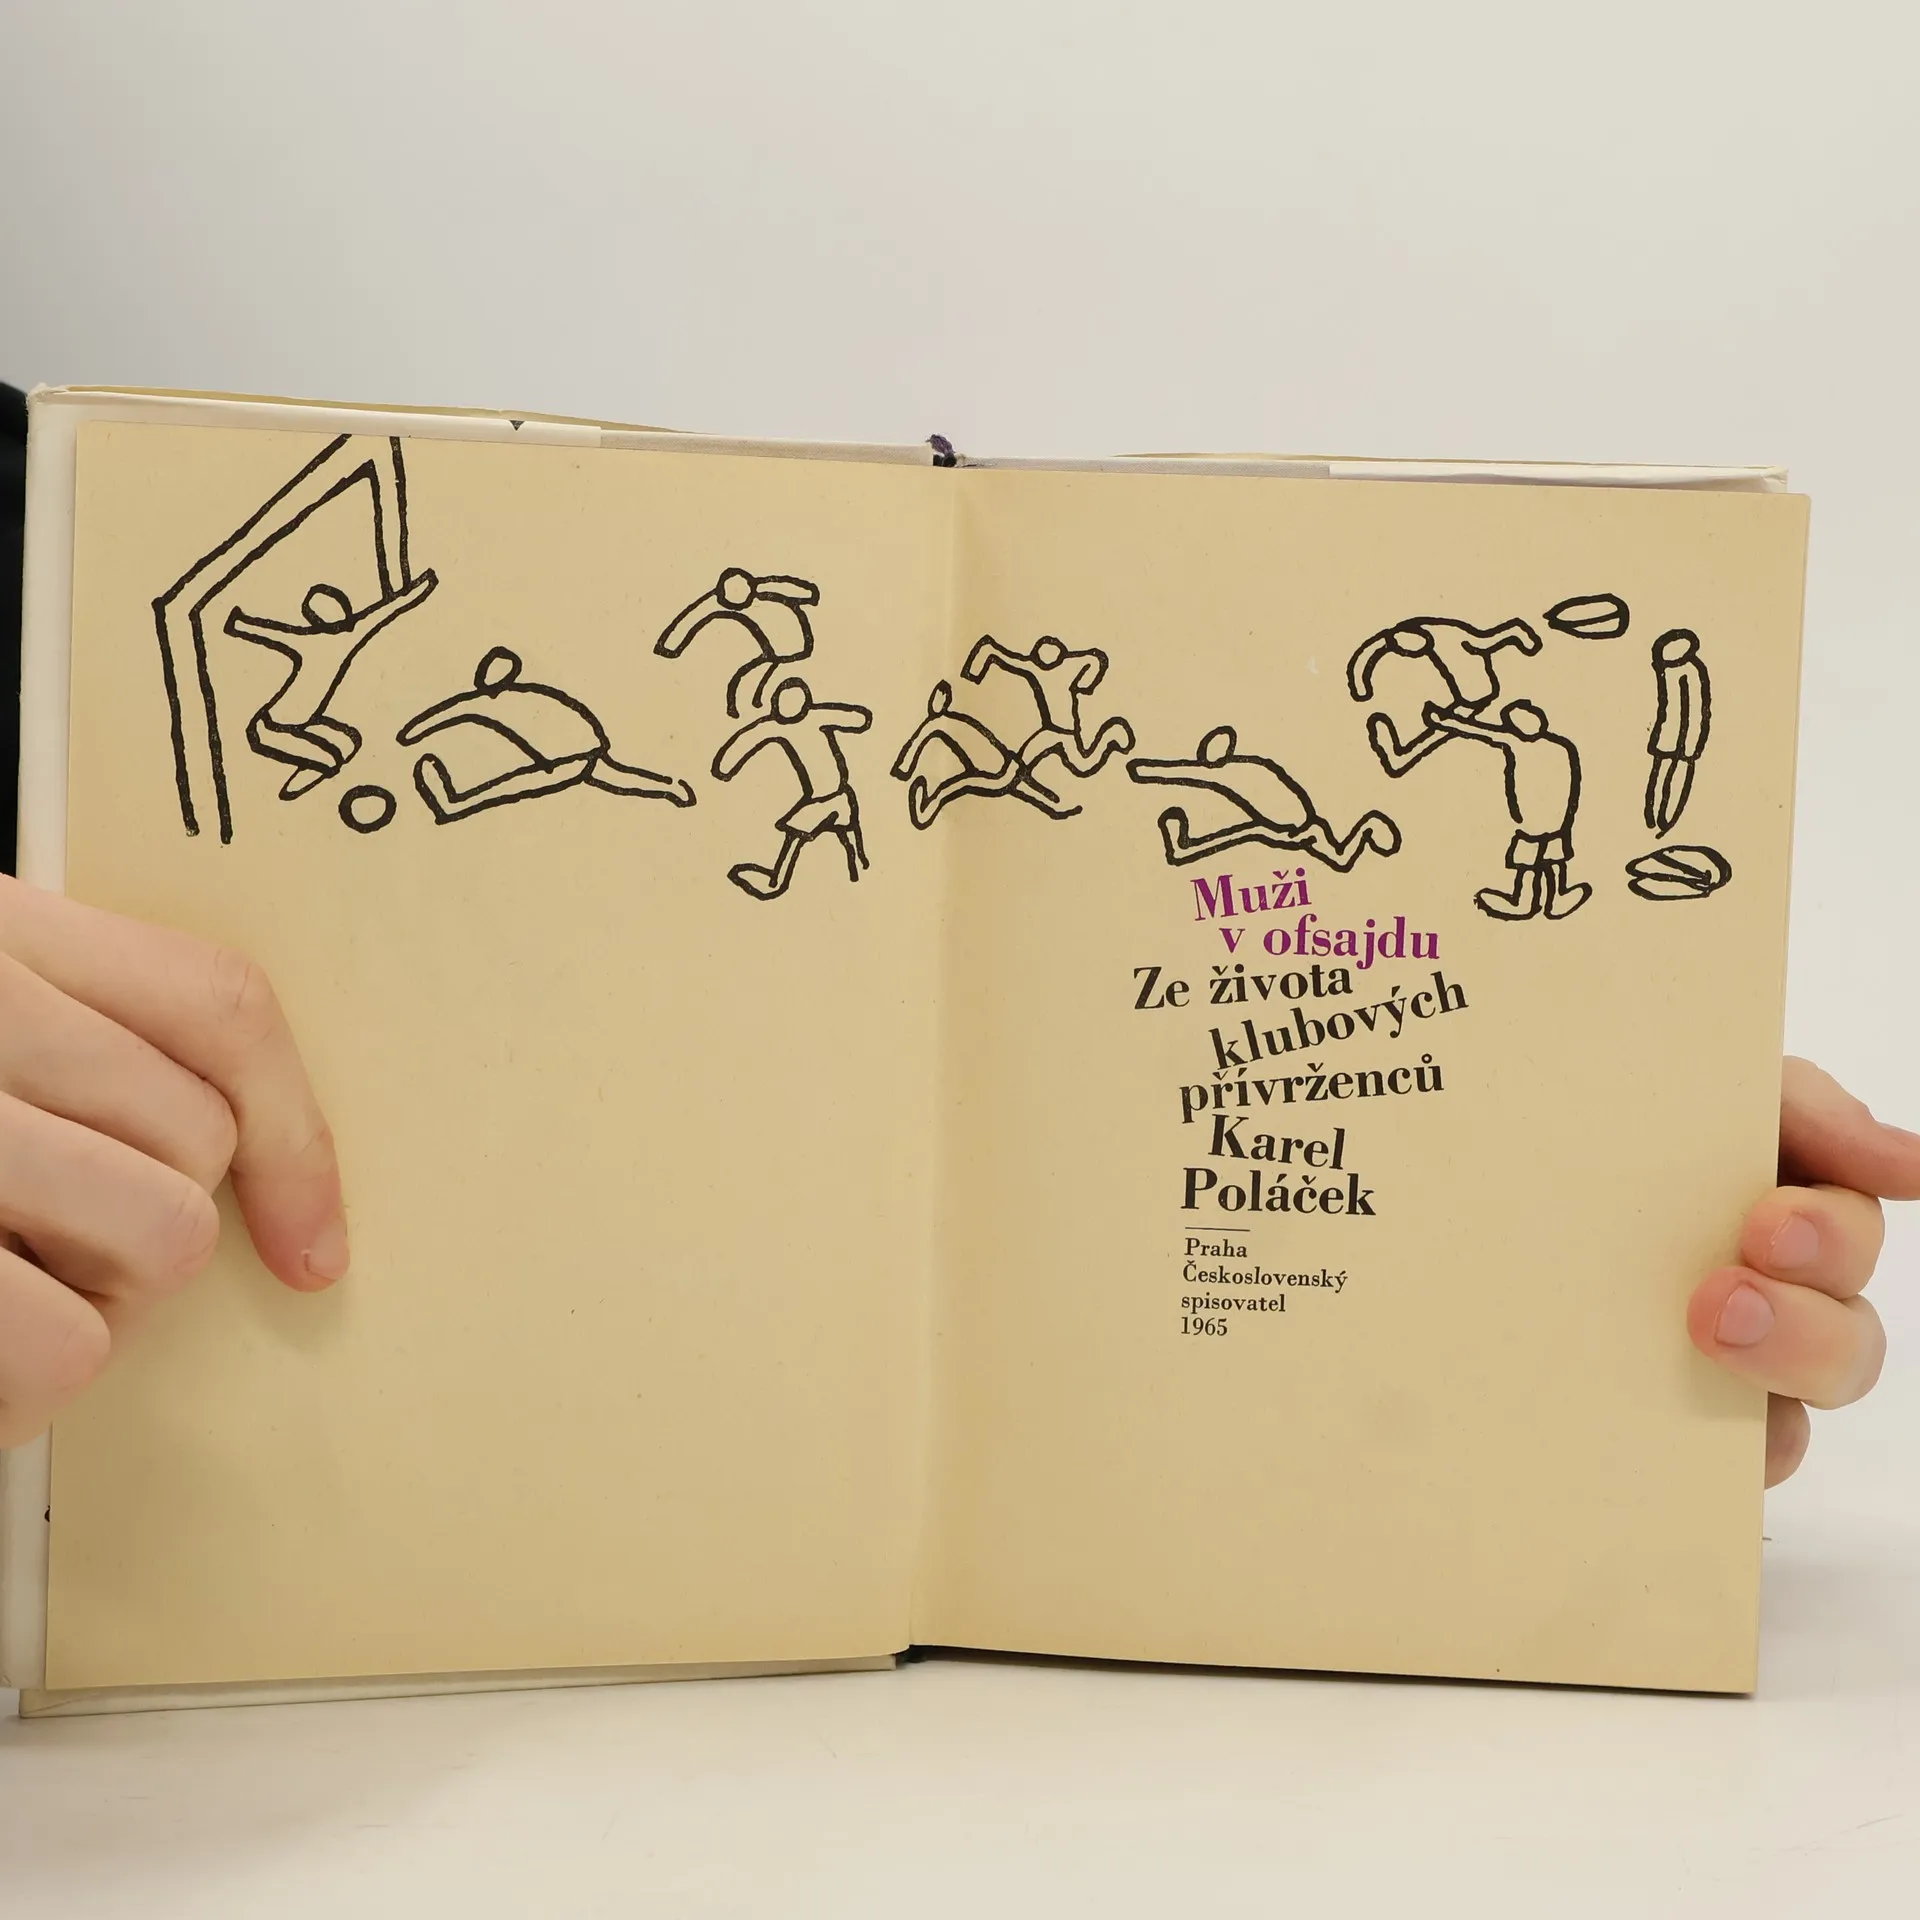 Muži
v ofsajdu
Ze života
klubových
přívrženců
Karel
Poláček
Praha
Československý
spisovatel
1965